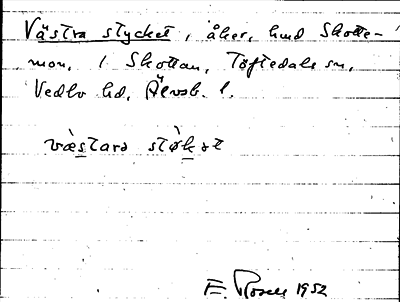 Västra stycket, åker, hmd Skotte-
mon, 1 Skottan, Töftedals sn,
Vedbo hd, Älvsb. l.
væ̀starə stø̀kət
E. Rosell 1952